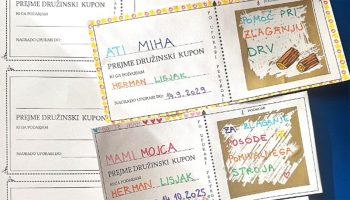 PREJME DRUŽINSKI KUPON
KI GA PODARJAM
NAGRADO UPORABI DO:
ATI MIHA
PREJME DRUŽINSKI KUPON
KI GA PODARJAM
HERMAN LISJAK
NAGRADO UPORABI DO: 14.9.2029
POMOČ PRI
ZLAGANJU
DRV
PREJME DRUŽINSKI KUPON
KI GA PODARJAM
NAGRADO UPORABI DO:
MAMI MOJCA
PREJME DRUŽINSKI KUPON
KI GA PODARJAM
HERMAN LISJAK
14.10.2025
ZA ZLAGANJE
POSODE IZ
POMIVALNEGA
STROJA